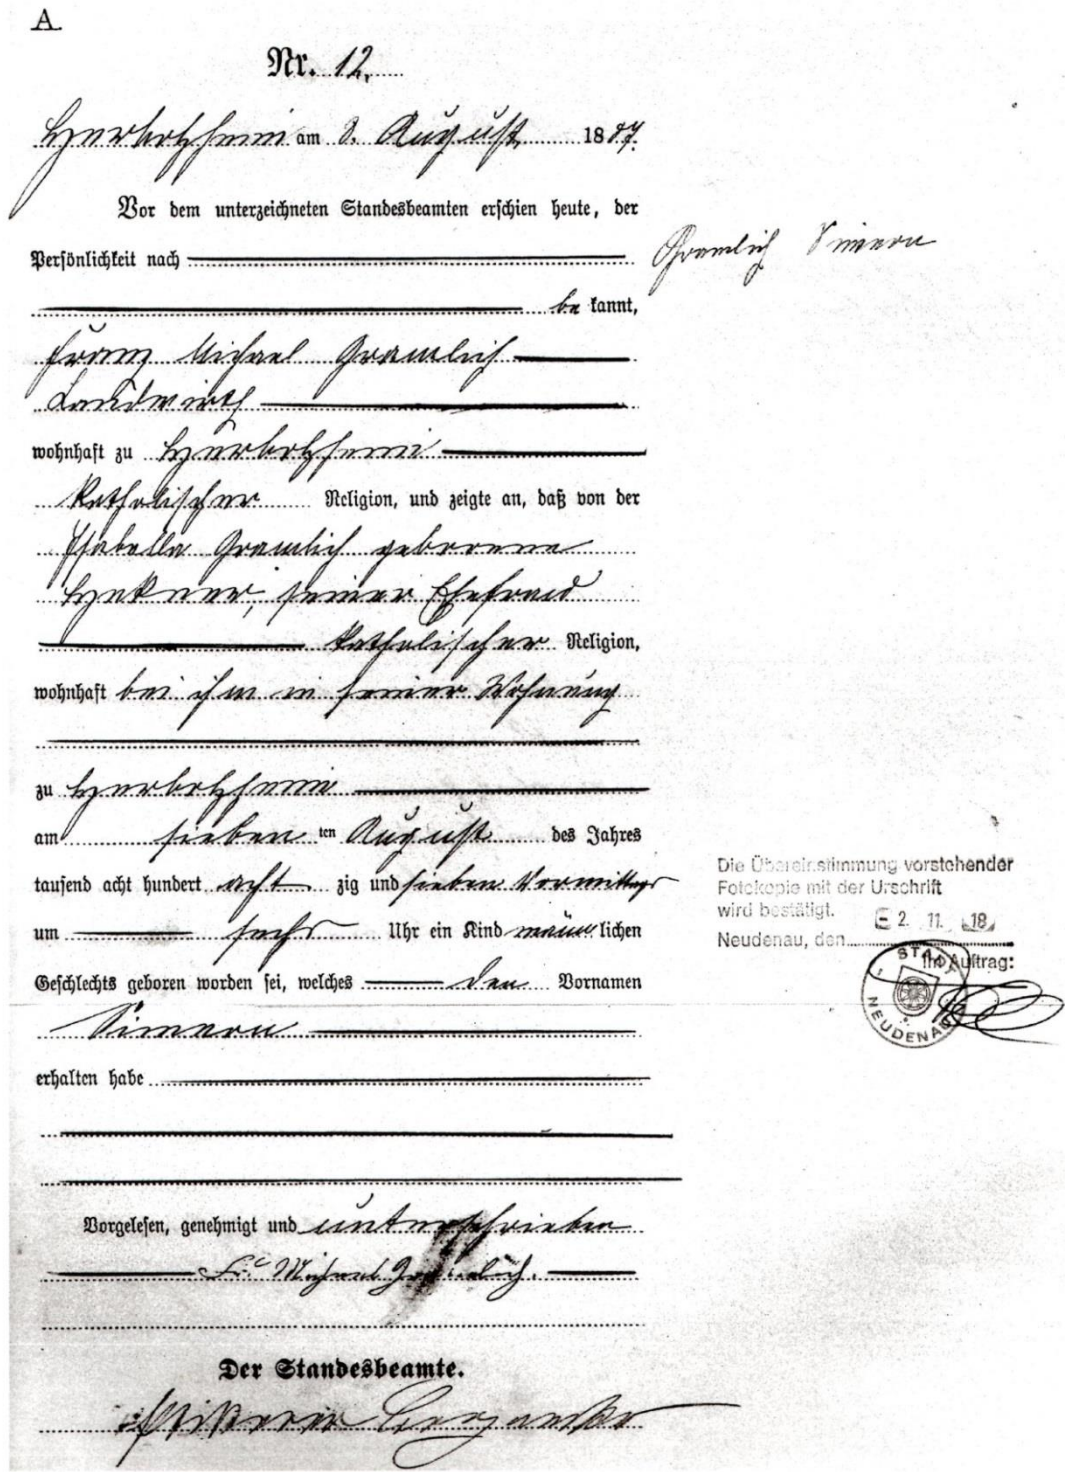 A.
Nr. 12.
Herbolzheim am 8. August 1887.
Vor dem unterzeichneten Standesbeamten erschien heute, der
Persönlichkeit nach
Gramlich Simeon
be kannt,
Franz Michael Gramlich
Landwirth
wohnhaft zu Herbolzheim
katholischer Religion, und zeigte an, daß von der
Isabella Gramlich geborene
seiner Ehefrau
katholischer Religion,
wohnhaft bei ihm in seiner Wohnung
zu Herbolzheim
am sieben ten August des Jahres
tausend acht hundert acht zig und sieben Vormittags
um sechs Uhr ein Kind männ lichen
Geschlechts geboren worden sei, welches den Vornamen
Simeon
erhalten habe
Vorgelesen, genehmigt und unterschrieben
Michael Gramlich.
Der Standesbeamte.
Die Übereinstimmung vorstehender
Fotokopie mit der Urschrift
wird bestätigt.
Neudenau, den 2. 11. 18
Im Auftrag:
STADT NEUDENAU